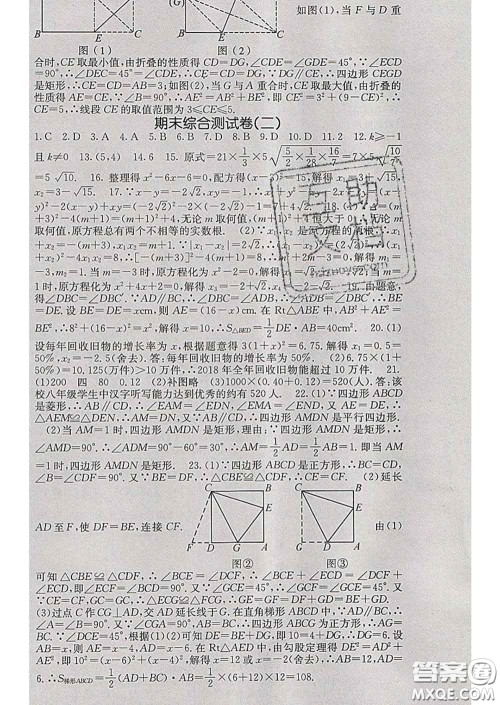 B E C
B E C
(G)
如图(1),当 F 与 D 重
图(1) 图(2)
合时,CE 取最小值,由折叠的性质得 CD=DG,∠CDE=∠GDE=45°,∵∠ECD
=90°,∴∠DEC=45°=∠CDE,∴CE=CD=DG,∵DG∥CE,∴四边形 CEGD
是矩形,∴CE=CD=AB=3;如图(2),当 G 与 A 重合时,CE 取最大值,由折叠的
性质得 AE=CE,∵∠B=90°,∴AE²=AB²+BE²,即 CE²=3²+(9-CE)²,∴
CE=5,∴线段 CE 的取值范围为 3≤CE≤5.
期末综合测试卷(二)
1.C 2.D 3.A 4.A 5.D 6.B 7.B 8.D 9.D 10.D 11.2 12.k≥-1
且 k≠0 13.(5,4) 14.6 15.原式=
=5√10. 16.整理得 x²-6x-6=0,配方得
+√15,x₂=3-√15. 17.
无论 m
取何值,原方程总有两个不相等的实数根. (2)
x₁+x₂=-(m+3),x₁·x₂=m+1.
=8,∴(x₁+x₂)²-4x₁x₂=8.∴[-(m+3)]²-4(m+1)=8,∴m²+2m-3=0.解得 m=
-3,m=1.当 m=-3 时,原方程化为 x²-2=0,解得 x₁=√2,x₂=-√2.当 m=1 时,
原方程化为 x²+4x+2=0,解得 x₁=-2+√2,x₂=-2-√2. 19.由题意,
得∠DBC=∠DBC′.∵AD∥BC,∴∠DBC=∠ADB,∴∠DBC′=∠ADB,∴BE=
DE.设 BE=DE=xcm,则 AE=(16-x)cm.在 Rt△ABE 中,AB²+AE²=
BE²,∴8²+(16-x)²=x²,解得 x=10,∴S△BED=1/2 DE·AB=40cm². 20.(1)
设每年回收旧物的增长率为 x,根据题意得 3(1+x)²=6.75.解得 x₁=0.5=
50%,x₂=-2.5(舍去).答:每年回收旧物的增长率为 50%. (2)6.75×(1+
50%)=10.125(万斤)>10 万件,∴2018 年全年回收旧物能超过 10 万件.
21.(1)200 四 80 0.12 (2)补图略 (3)1000×(0.40+0.12)=520(人).答:该
校八年级学生中汉字听写能力达到优秀的约有 520 人. 22.(1)∵四边形 ABCD
是菱形,∴AB∥CD,∴∠EAM=∠EDN,∠EMA=∠END,又 AE=DE,∴
△EAM≌△EDN,∴AM=DN,又∵AM∥DN,∴四边形 AMDN 是平行四边形.
(2)当 AM=1 时,四边形 AMDN 是矩形,理由:∵四边形 AMDN 是矩形,∴
∠AMD=90°,∴∠ADM=90°-60°=30°,∴AM=1/2 AD=1.即当 AM
=1 时,四边形 AMDN 是矩形. 23.(1)∵四边形 ABCD 是正方形,∴BC=DC,
∠CBE=∠CDF=90°.又∵BE=DF,∴△CBE≌△CDF,∴CE=CF. (2)延长
C B
C B
E
E
F D G A
G D A
AD 至 F,使 DF=BE,连接 CF. 由(1)
图② 图③
可知△CBE≌△CDF,∴∠BCE=∠DCF,∴∠BCE+∠ECD=∠DCF+
∠ECD,即∠ECF=∠BCD=90°.又∵∠GCE=45°,∴∠GCF=∠GCE=45°.又
∵CE=CF,GC=GC,∴△ECG≌△FCG,∴GE=GF=GD+DF=GD+BE.
(3)过点 C 作 CG⊥AD,交 AD 延长线于 G.在直角梯形 ABCD 中,∵AD∥BC,∴
∠A=∠B=90°.又∵∠CGA=90°,AB=BC,∴四边形 ABCG 为正方形,∴AG=
BC=12.∵∠DCE=45°,根据(1)(2)可知 ED=BE+DG,即 10=4+DG,∴DG=
6.设 AB=x,则 AE=x-4,AD=x-6.在 Rt△AED 中,由勾股定理得 DE²=AD²+
AE²,即 10²=(x-6)²+(x-4)²,解得 x=12 或 x=-2(舍去),∴AB=12,AD=
6.∴S梯形ABCD=1/2(AD+BC)·AB=1/2×(6+12)×12=108.
互助
文档
答案圈
MXQE.COM